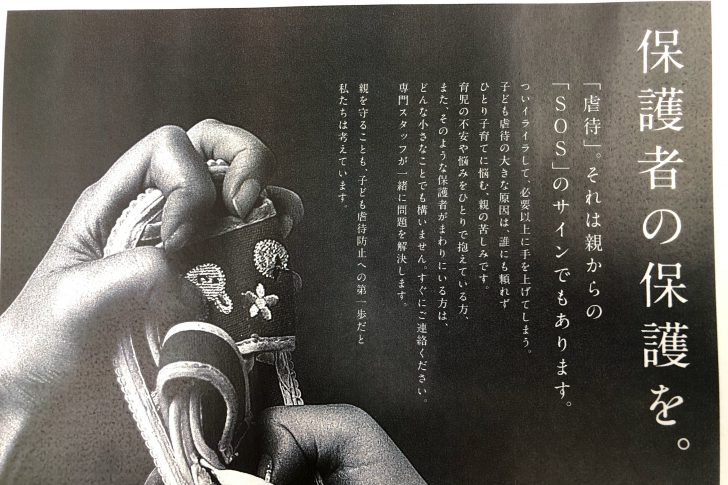 保護者の保護を。
「虐待」。それは親からの
「SOS」のサインでもあります。
ついイライラして、必要以上に手を上げてしまう。
子ども虐待の大きな原因は、誰にも頼れず
ひとり子育てに悩む、親の苦しみです。
育児の不安や悩みをひとりで抱えている方、
また、そのような保護者がまわりにいる方は、
どんな小さなことでも構いません。すぐにご連絡ください。
専門スタッフが一緒に問題を解決します。
親を守ることも、子ども虐待防止への第一歩だと
私たちは考えています。